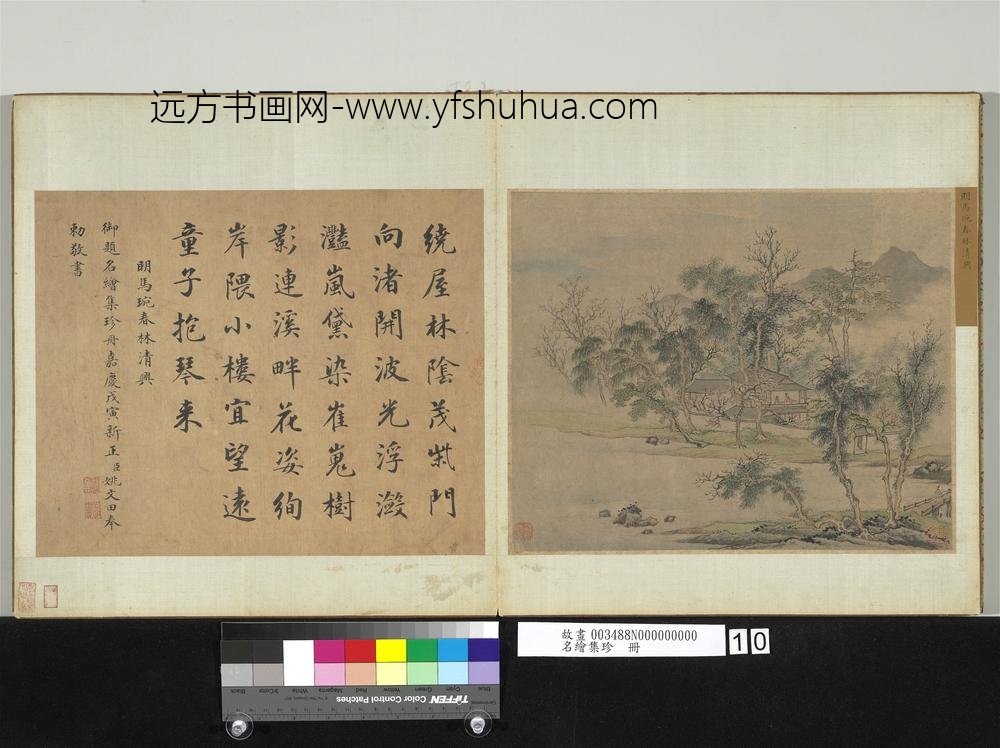 远方书画网-www.yfshuhua.com
明馬琬春林清興
繞屋林陰茂柴門
向渚開波光浮瀲
灩嵐黛染崔嵬樹
影連溪畔花姿絢
岸隈小樓宜望遠
童子抱琴来
明馬琬春林清興
御題名繪集珍冊嘉慶戊寅新正臣姚文田奉
勅敬書
故畫 003488N000000000
名繪集珍 冊
10
Black
3/Color
White
Magenta
Red
Yellow
Green
Cyan
Blue
TIFFEN Color Control Patches